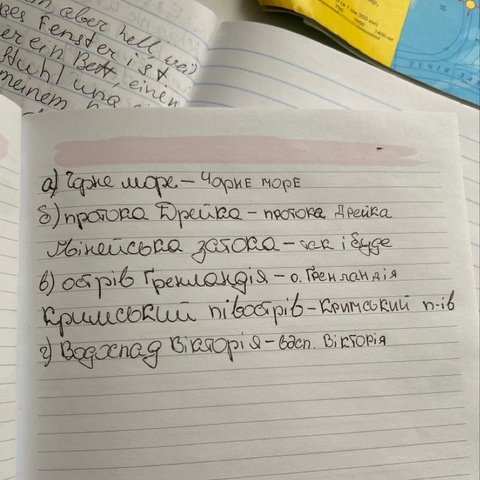 an aber hell
es Fenster ist
er ein Bett, einen
Stuhl und
meinem
а) Чорне море – Чорне море
б) протока Дрейка – протока Дрейка
Гвінейська затока – так і буде
в) острів Гренландія – о. Гренландія
Кримський півострів – Кримський п-ів
г) Водоспад Вікторія – вдсп. Вікторія